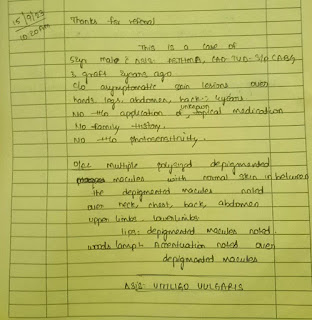 15/9/23
10:20am
Thanks for referral
This is a case of
52yr Male c̄ ASIS: ASTHMA, CAD-TVD- S/P CABG,
3 graft 3years ago
c/o asymptomatic skin lesions over
hands, legs, abdomen, back:- 4years
No H/o application of unknown topical medication
No family history.
No H/o photosensitivity.
O/E: multiple polysized depigmented
macules with normal skin in between
the depigmented macules noted
over neck, chest, back, abdomen
upper limbs, lowerlimbs
lips: depigmented macules noted.
woods lamp: Accentuation noted over
depigmented macules
ASIS: VITILIGO VULGARIS